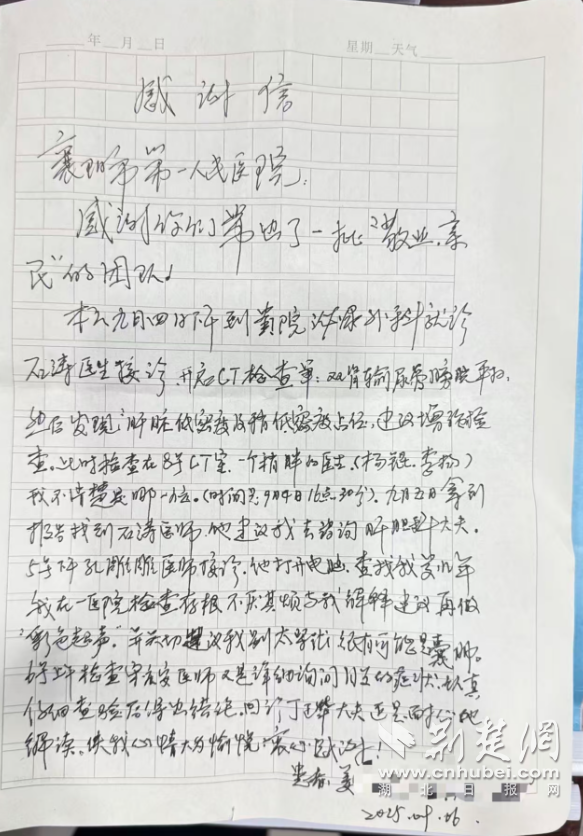 年 月 日 星期 天气
感谢信
襄阳市第一人民医院:
感谢你们带出了一批“敬业、亲
民”的团队!
本人九月四日下午到贵院泌尿外科就诊
石涛医生接诊,开启CT检查单:双肾输尿管膀胱平扫,
然后发现“肝脏低密度及稍低密度占位,建议增强检
查。此时检查在8号CT室,一个稍胖的医生(杨 李杨)
我不清楚是哪一位。(时间是9月4日16点30分)。九月五日拿到
报告找到石涛医师,他建议我去咨询肝胆 大夫。
5号下午孔雕雕医师接诊,他打开电脑,查找我 年
我在一医院检查存根不厌其烦与我解释建议再做
“彩色超声”。并关切建议我别太 很有可能是囊肿。
6号上午检查宋 医师又是详细询问 的症状,认真
仔细查验后得出结论,回诊丁 大夫还是耐心地
解读,使我心情大为愉悦,衷心感谢!
患者:姜
2025.09.06.
荆楚网
www.cnhubei.com
湖北日报网